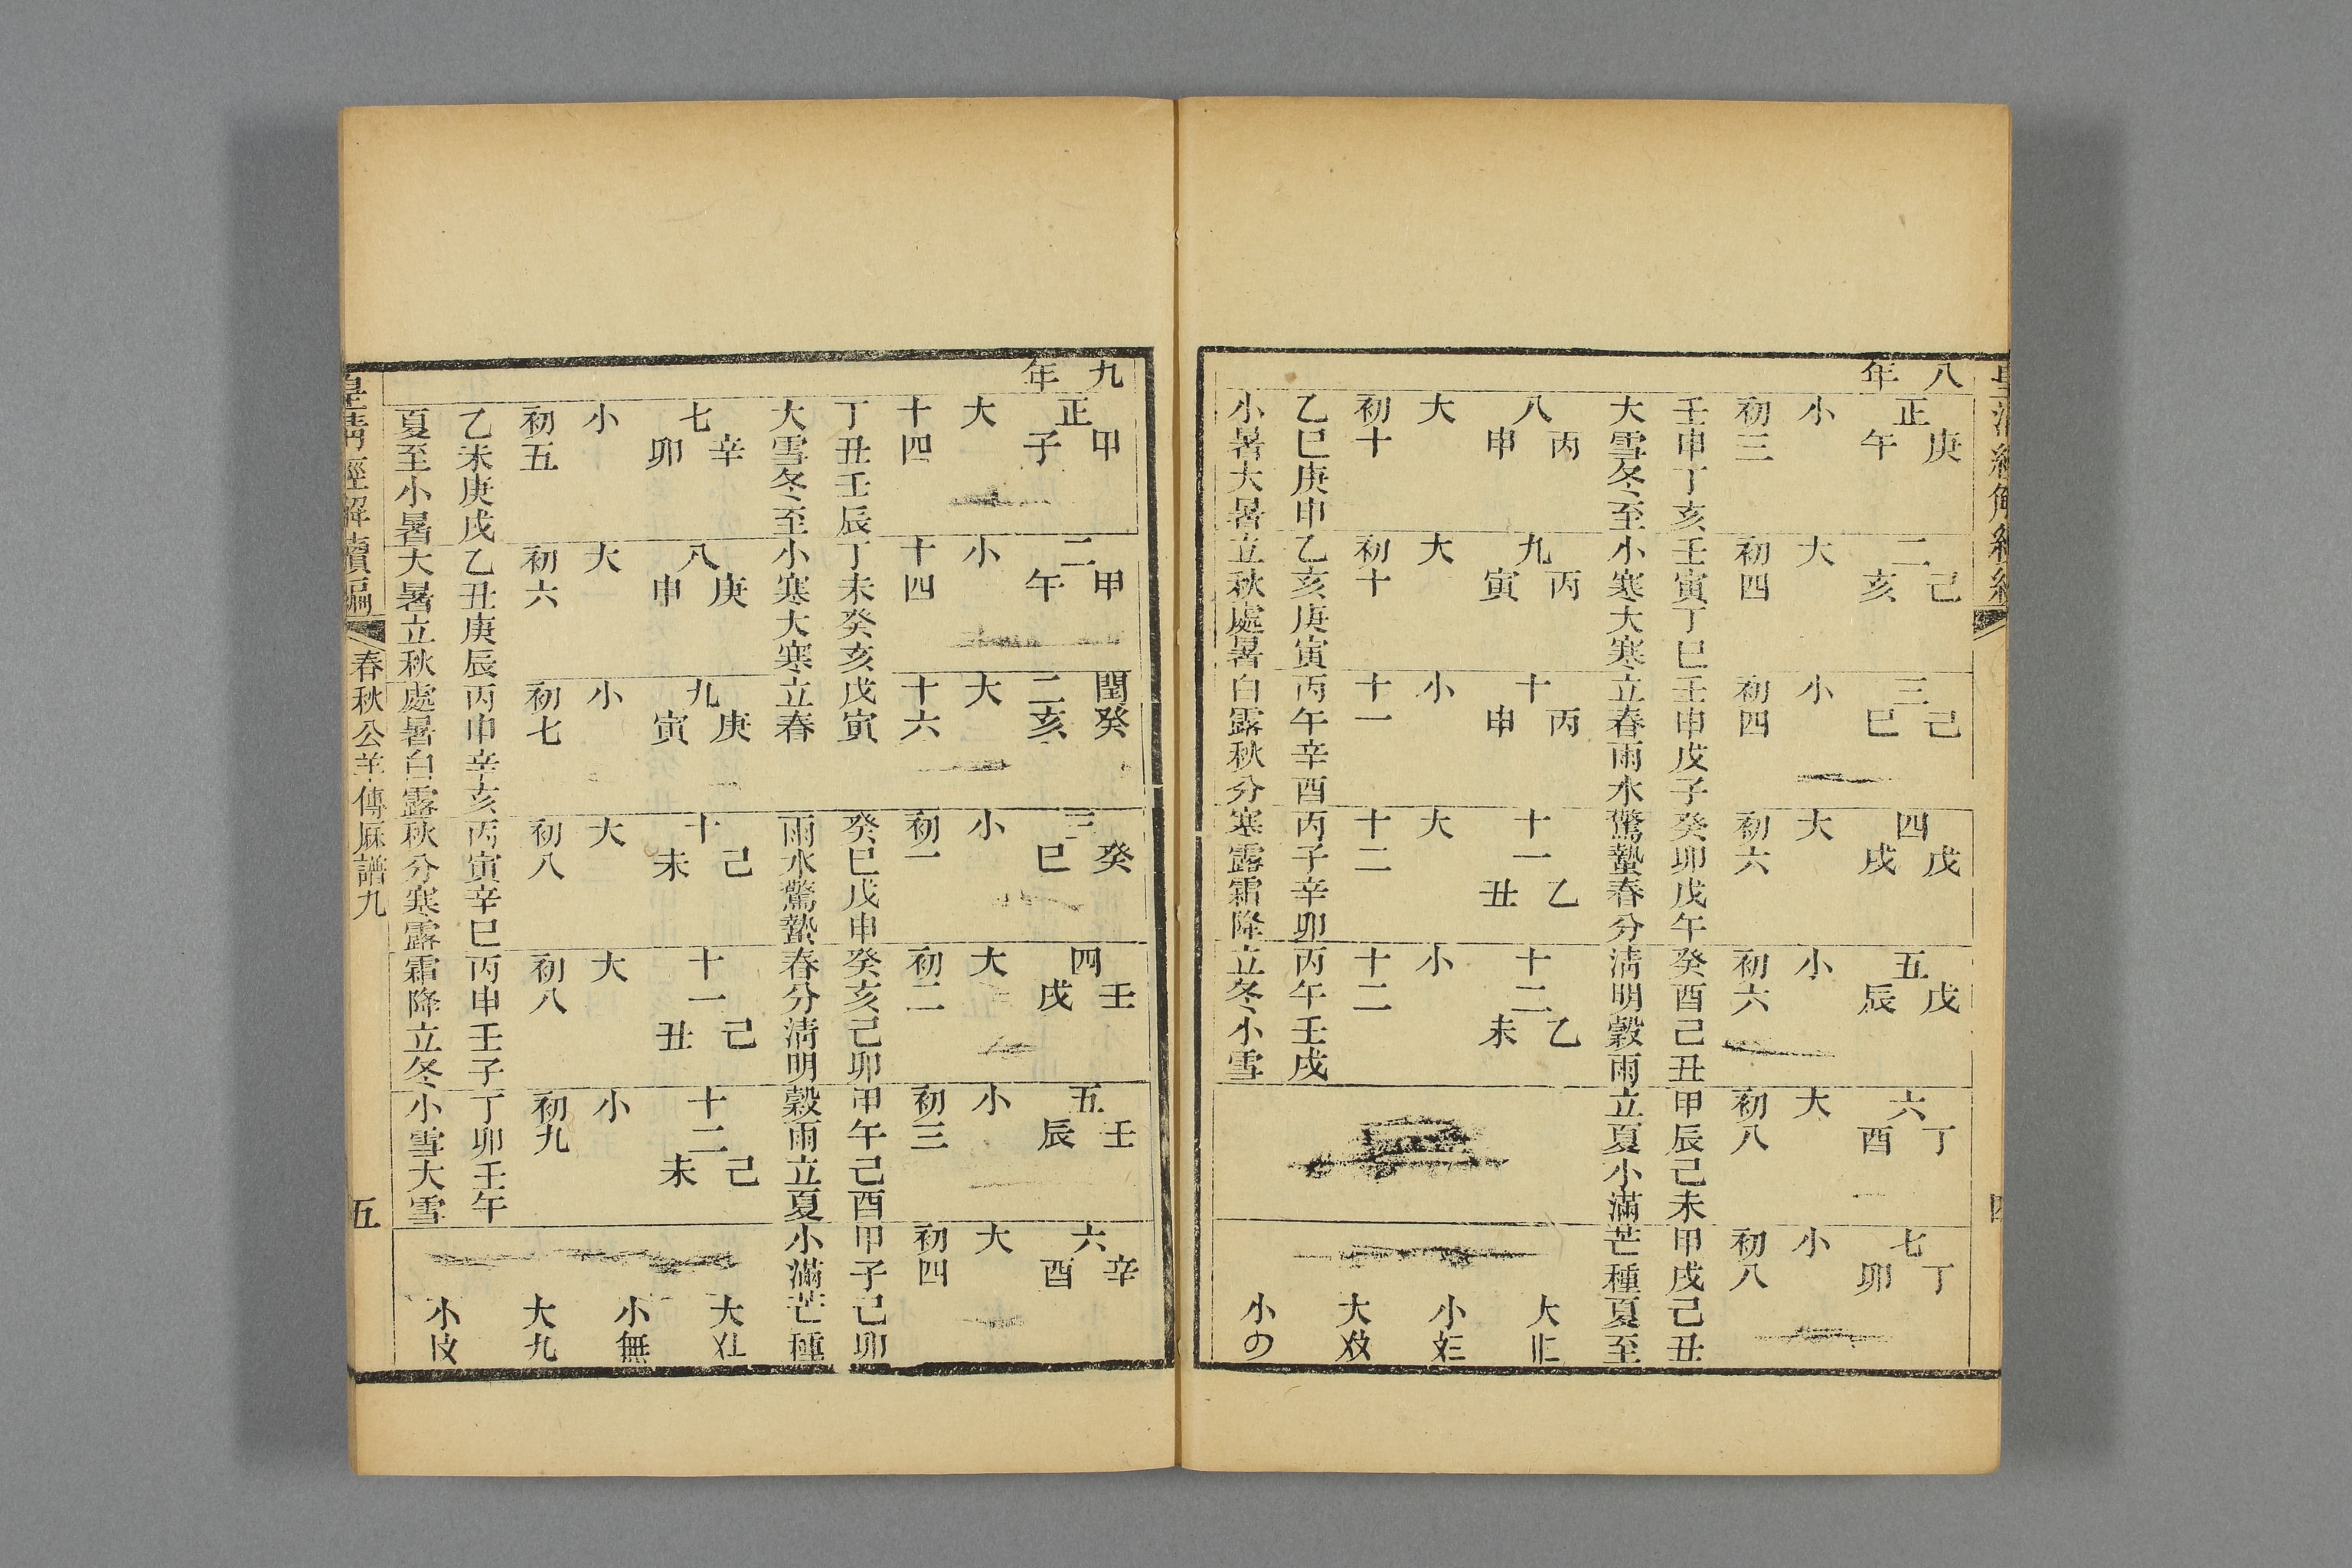 八年
正庚午
小
初三
壬申丁亥
大雪冬至
二己亥
大
初四
壬寅丁巳
小寒大寒
三己巳
小
初四
壬申戊子
立春雨水
四戊戌
大
初六
癸卯戊午
驚蟄春分
五戊辰
小
初六
癸酉己丑
淸明穀雨
六丁酉
大
初八
甲辰己未
立夏小滿
七丁卯
小
初八
甲戌己丑
芒種夏至
八丙申
大
初十
乙巳庚申
小暑大暑
九丙寅
大
初十
乙亥庚寅
立秋處暑
十丙申
小
十一
丙午辛酉
白露秋分
十一乙丑
大
十二
丙子辛卯
寒露霜降
十二乙未
小
十二
丙午壬戌
立冬小雪
大
小
大
小
九年
正甲子
大
十四
丁丑壬辰
大雪冬至
二甲午
小
十四
丁未癸亥
小寒大寒
閏二癸亥
大
十六
戊寅
立春
三癸巳
小
初一
癸巳戊申
雨水驚蟄
四壬戌
大
初二
癸亥己卯
春分淸明
五壬辰
小
初三
甲午己酉
穀雨立夏
六辛酉
大
初四
甲子己卯
小滿芒種
七辛卯
小
初五
乙未庚戌
夏至小暑
八庚申
大
初六
乙丑庚辰
大暑立秋
九庚寅
小
初七
丙申辛亥
處暑白露
十己未
大
初八
丙寅辛巳
秋分寒露
十一己丑
大
初八
丙申壬子
霜降立冬
十二己未
小
初九
丁卯壬午
小雪大雪
大
小無
大九
小
皇淸經解續編
春秋公羊傳厤譜九
五